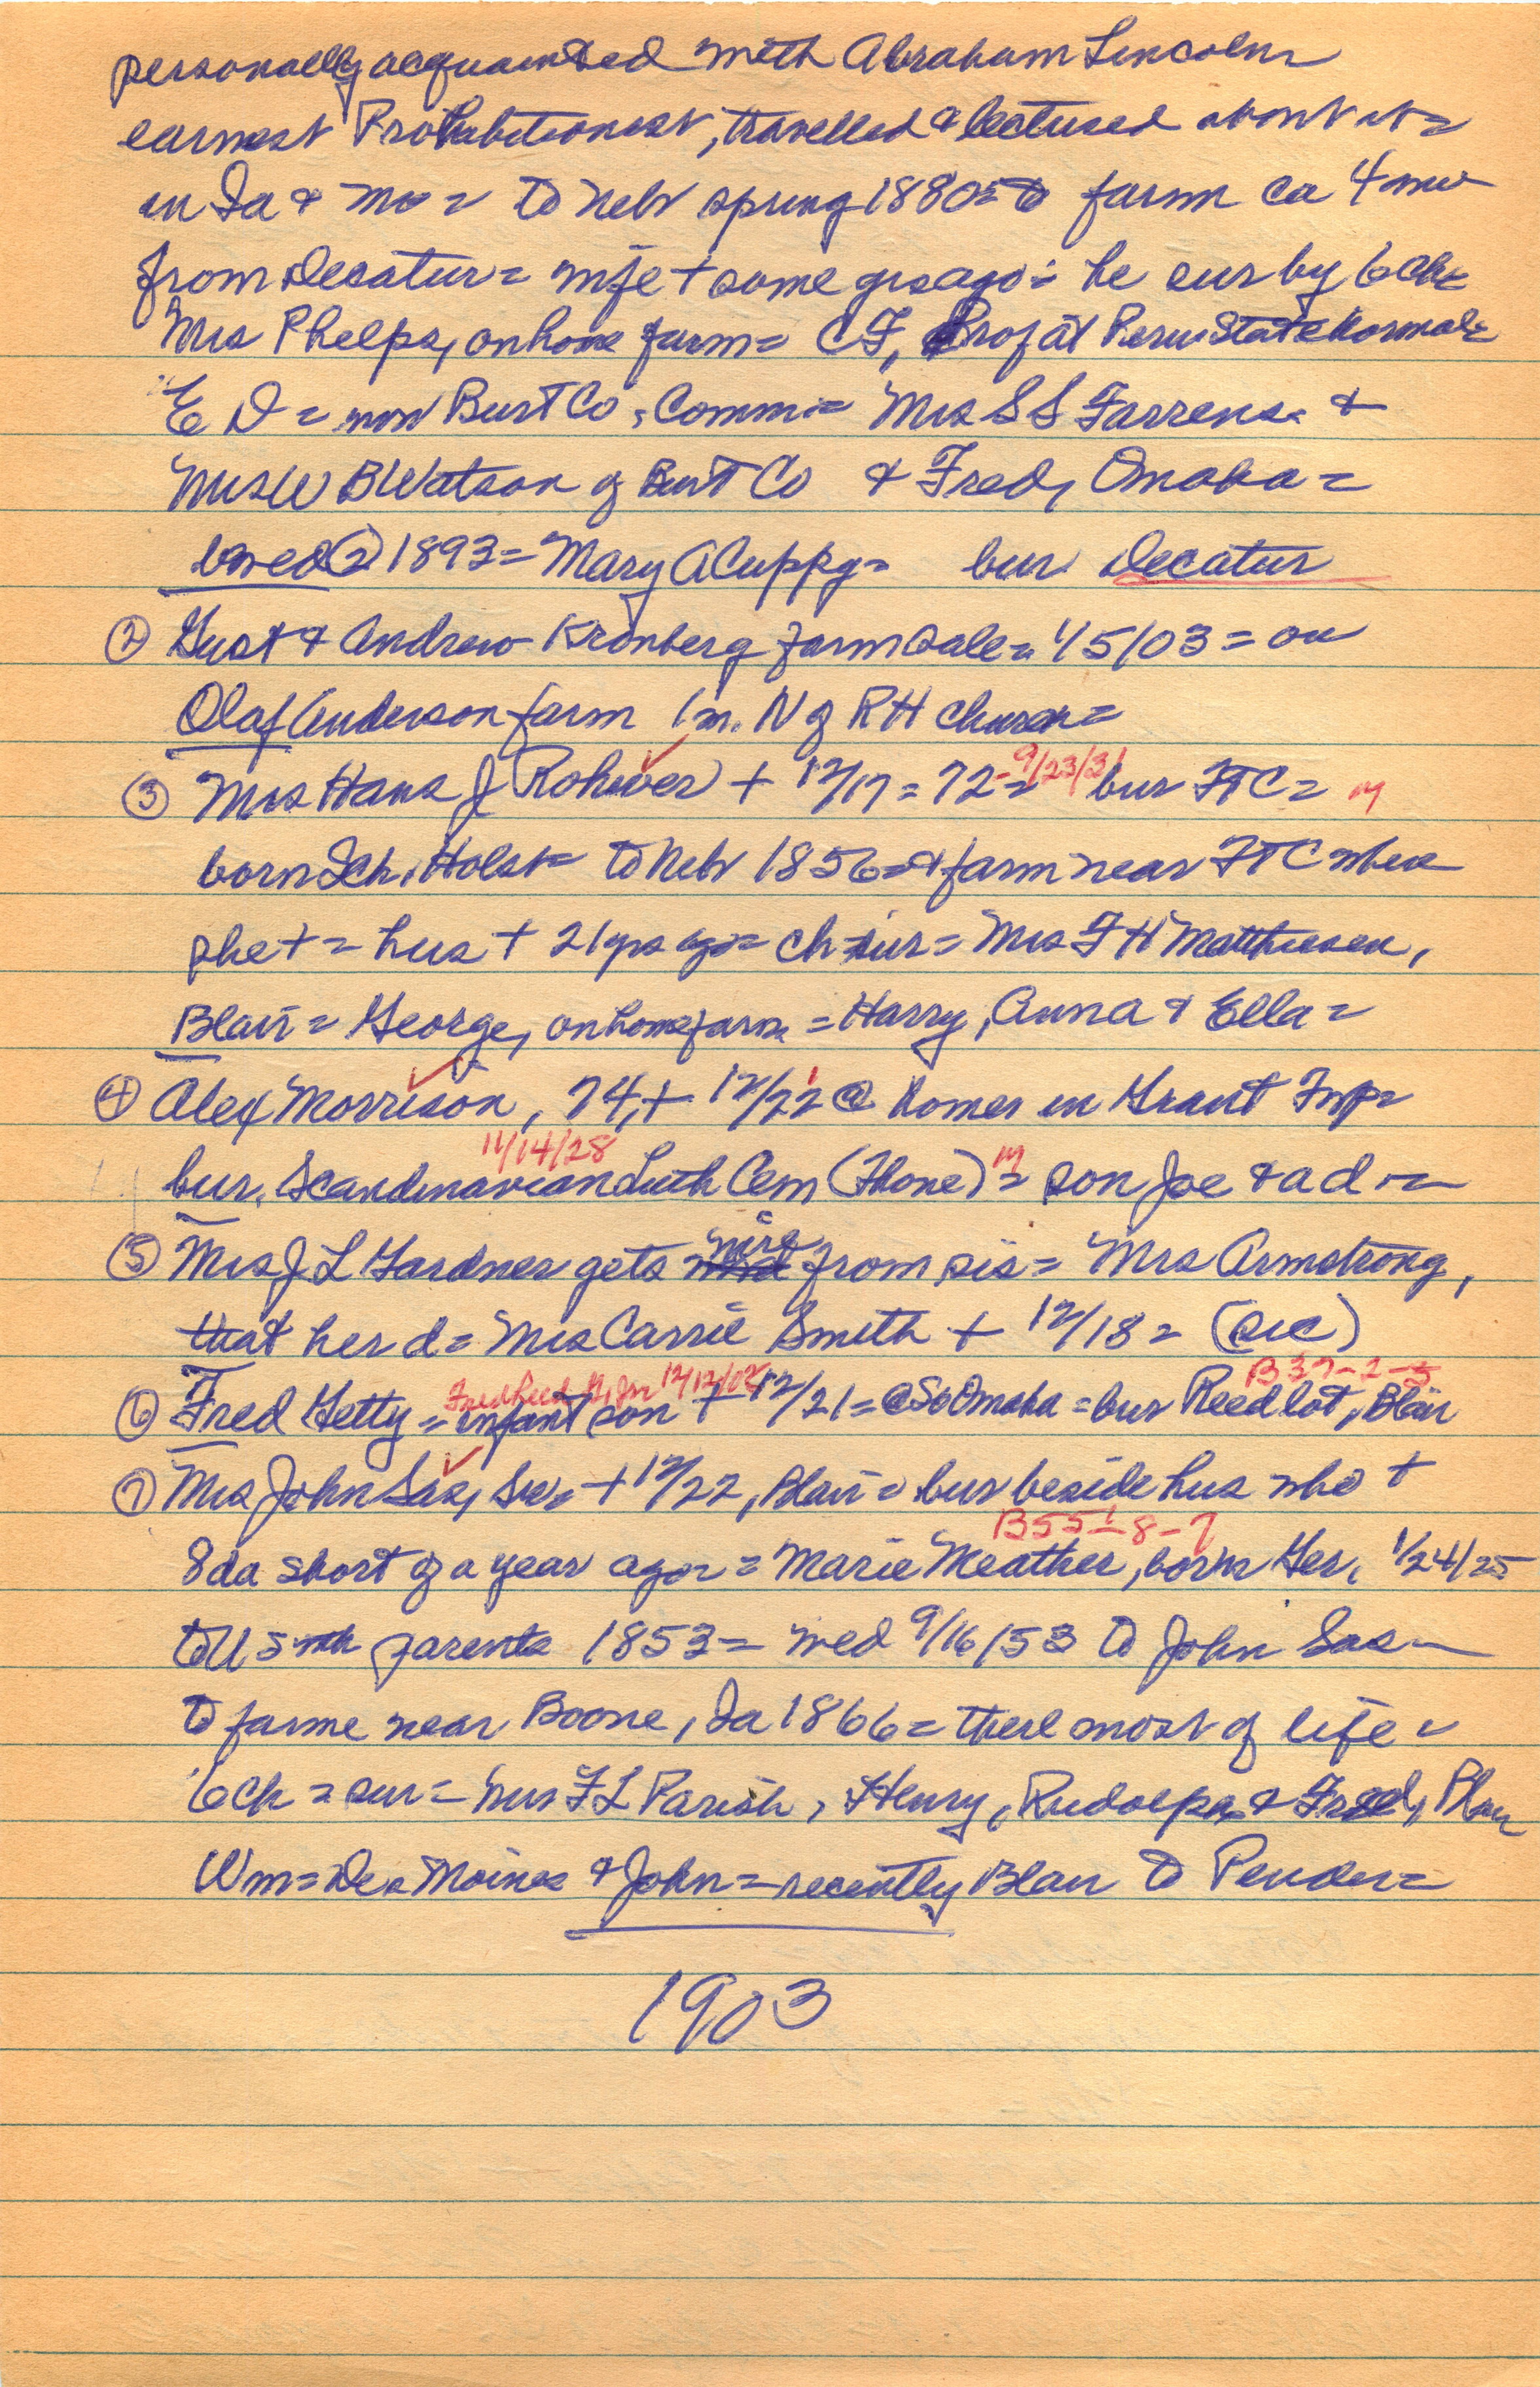 personally acquainted with Abraham Lincoln
earnest Prohibitionist, travelled & lectured about it =
in Ia & Mo = to Nebr spring 1880 = to farm ca 4 mi
from Decatur = wife + some yrs ago = he sur by 6 ch =
Mrs Phelps, on home farm = C F, Prof at Peru State Normal =
E D = now Burt Co. Comm. = Mrs S S Farrens &
Mrs W B Watson of Burt Co & Fred, Omaha =
wed ② 1893 = Mary A Cuppy = bur Decatur
② Gust & Andrew Kronberg farm sale = 1/5/03 = on
Olaf Anderson farm 1 m. N of RH church =
③ Mrs Hans J Rohwer + 12/17 = 72 = 9/23/31 bur FTC = M
born Sch. Holst = to Nebr 1856 = & farm near FTC where
she + = hus + 21 yrs ago = ch sur = Mrs F H Matthiesen,
Blair = George, on home farm = Harry, Anna & Ella =
④ Alex Morrison, 74, + 12/22 @ home in Grant Twp =
11/14/28
bur. Scandinavian Luth Cem (Fhone) M = son Joe & a d =
⑤ Mrs J L Gardner gets wire from sis = Mrs Armstrong,
that her d = Mrs Carrie Smith + 12/18 = (sic)
Fred Reed G, Jr 12/12/02 B 37-2-5
⑥ Fred Getty = infant son + 12/21 = @ So Omaha = bur Reed lot, Blair
⑦ Mrs John Sas, Sr. + 12/22, Blair = bur beside hus who +
B 55-8-7
8 da short of a year ago = Marie Meather, born Ger. 1/24/25
to U S with parents 1853 = wed 9/16/53 to John Sas
to farm near Boone, Ia 1866 = there most of life =
6 ch = sur = Mrs F L Parish, Henry, Rudolph & Fred, Blair
Wm = Des Moines & John = recently Blair to Pender =
1903